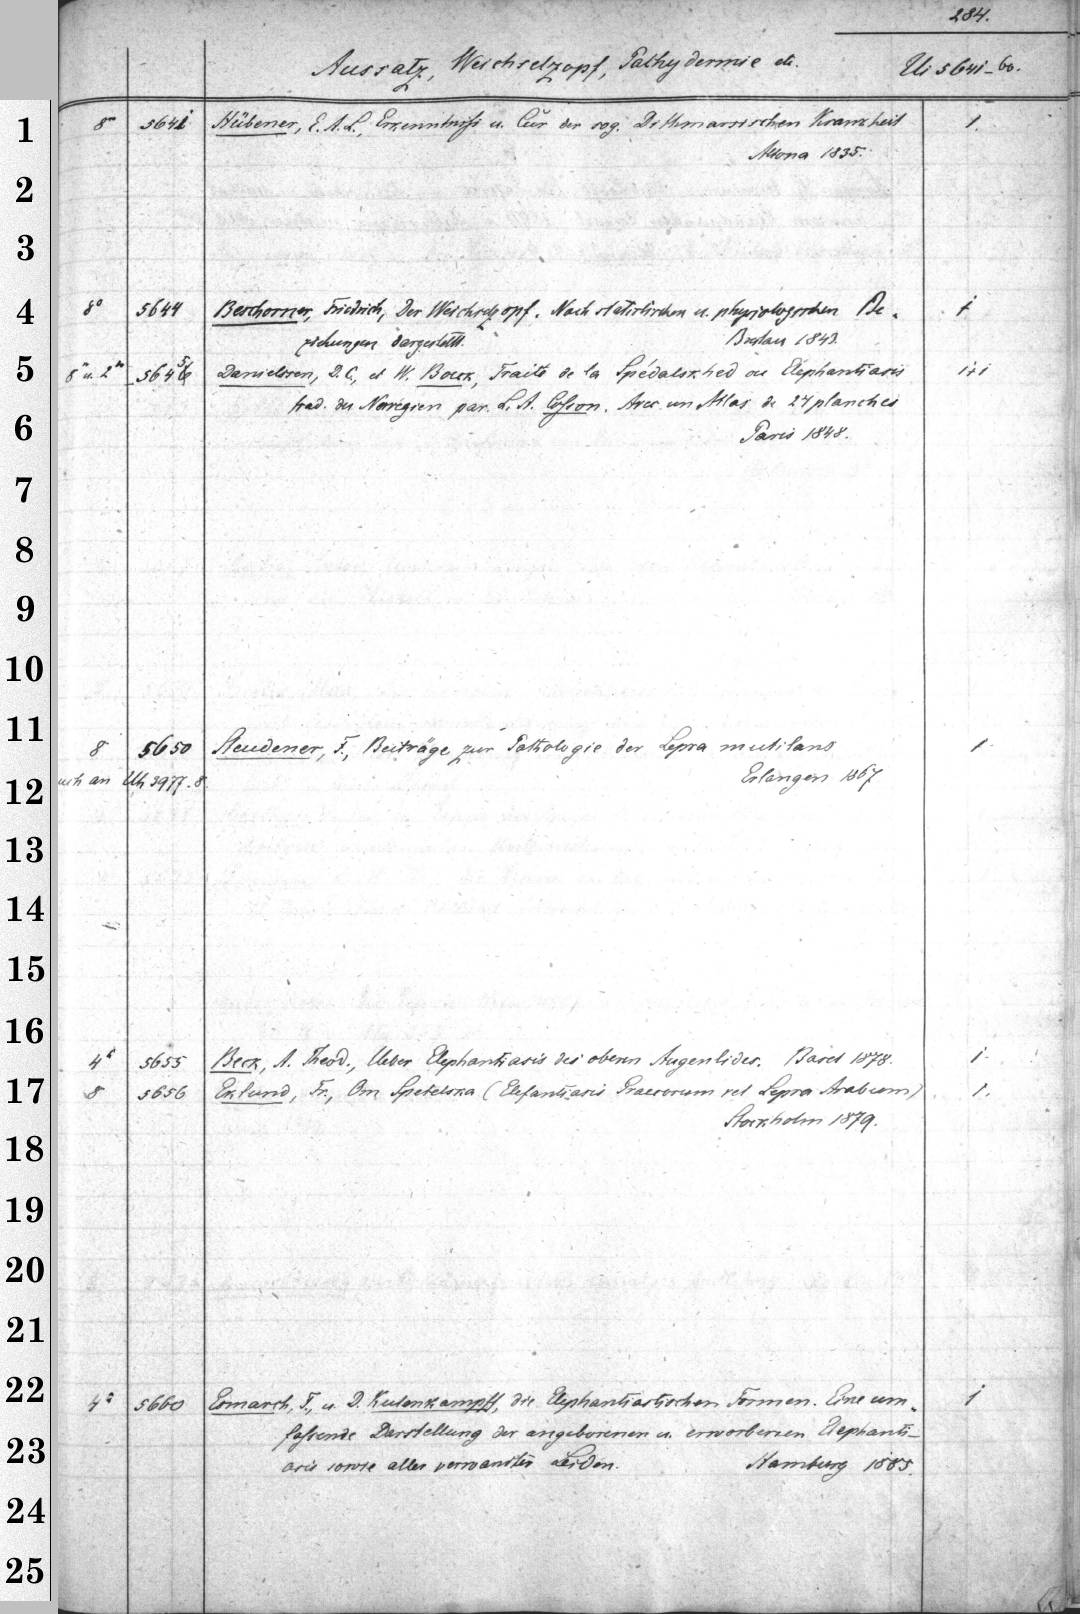 284.
Aussatz, Weichselzopf, Pathydermie etc. Uli 5641-60.
1 8° 5641 Hübener, E. A. L., Erkenntniss u. Cur der sog. Dithmarsischen Krankheit 1.
Altona 1835.
2
3
4 8° 5644 Beschorner, Friedrich, Der Weichselzopf. Nach statistischen u. physiologischen Be- 1
ziehungen dargestellt. Breslau 1843.
5 8° u. 2° 5645/6 Danielssen, D. C., et W. Boeck, Traité de la Spédalskhed ou Éléphantiasis 1+1
trad. du Norvégien par L. A. Cosson. Avec un Atlas de 24 planches
6 Paris 1848.
7
8
9
10
11 8 5650 Steudener, F., Beiträge zur Pathologie der Lepra mutilans 1
12 auch an Uh 3977.8 Erlangen 1867
13
14
15
16 4° 5655 Beck, A. Theod., Ueber Elephantiasis des obern Augenlides. Basel 1878. 1.
17 8 5656 Eklund, Fr., Om Spetelska (Elefantiasis Graecorum vel Lepra Arabum) 1.
Stockholm 1879.
18
19
20
21
22 4° 5660 Esmarch, F., u. D. Kulenkampff, die Elephantiastischen Formen. Eine um- 1
fassende Darstellung der angeborenen u. erworbenen Elephanti-
23 asis sowie aller verwandten Leiden. Hamburg 1885.
24
25